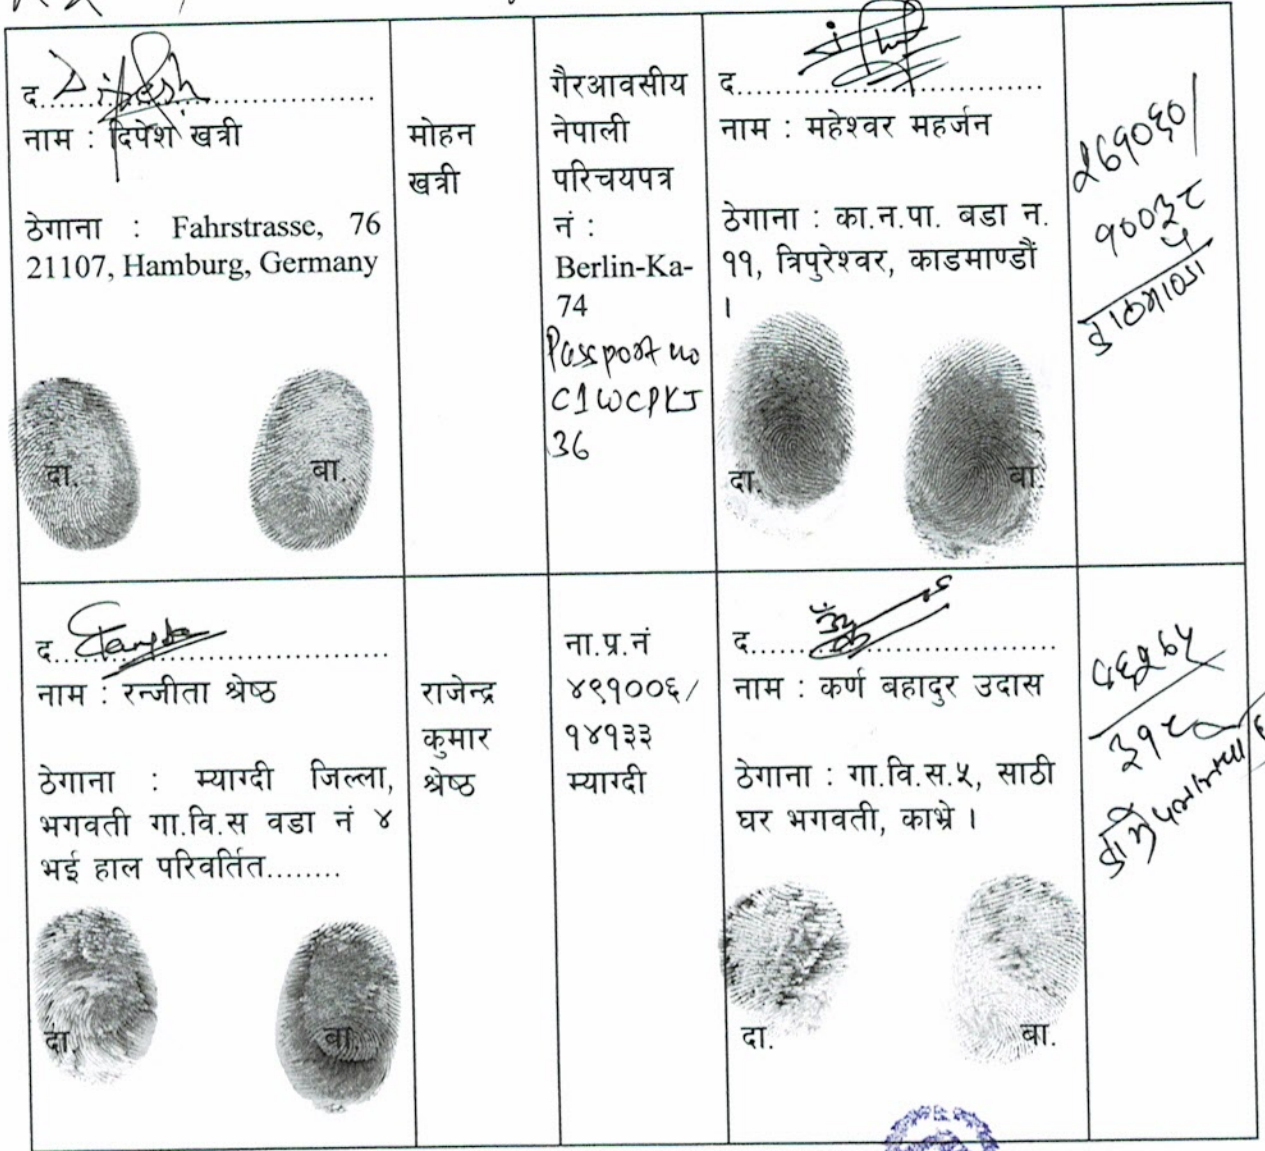 द..............................
नाम : दिपेश खत्री
ठेगाना : Fahrstrasse, 76
21107, Hamburg, Germany
दा. बा.
मोहन
खत्री
गैरआवसीय
नेपाली
परिचयपत्र
नं :
Berlin-Ka-
74
Passport no
C1WCPKJ
36
द..............................
नाम : महेश्वर महर्जन
ठेगाना : का.न.पा. वडा न.
११, त्रिपुरेश्वर, काडमाण्डौं
।
दा. बा.
द..............................
नाम : रन्जीता श्रेष्ठ
ठेगाना : म्याग्दी जिल्ला,
भगवती गा.वि.स वडा नं ४
भई हाल परिवर्तित........
दा. बा.
राजेन्द्र
कुमार
श्रेष्ठ
ना.प्र.नं
४९१००६/
१४१३३
म्याग्दी
द..............................
नाम : कर्ण बहादुर उदास
ठेगाना : गा.वि.स.५, साठी
घर भगवती, काभ्रे ।
दा. बा.